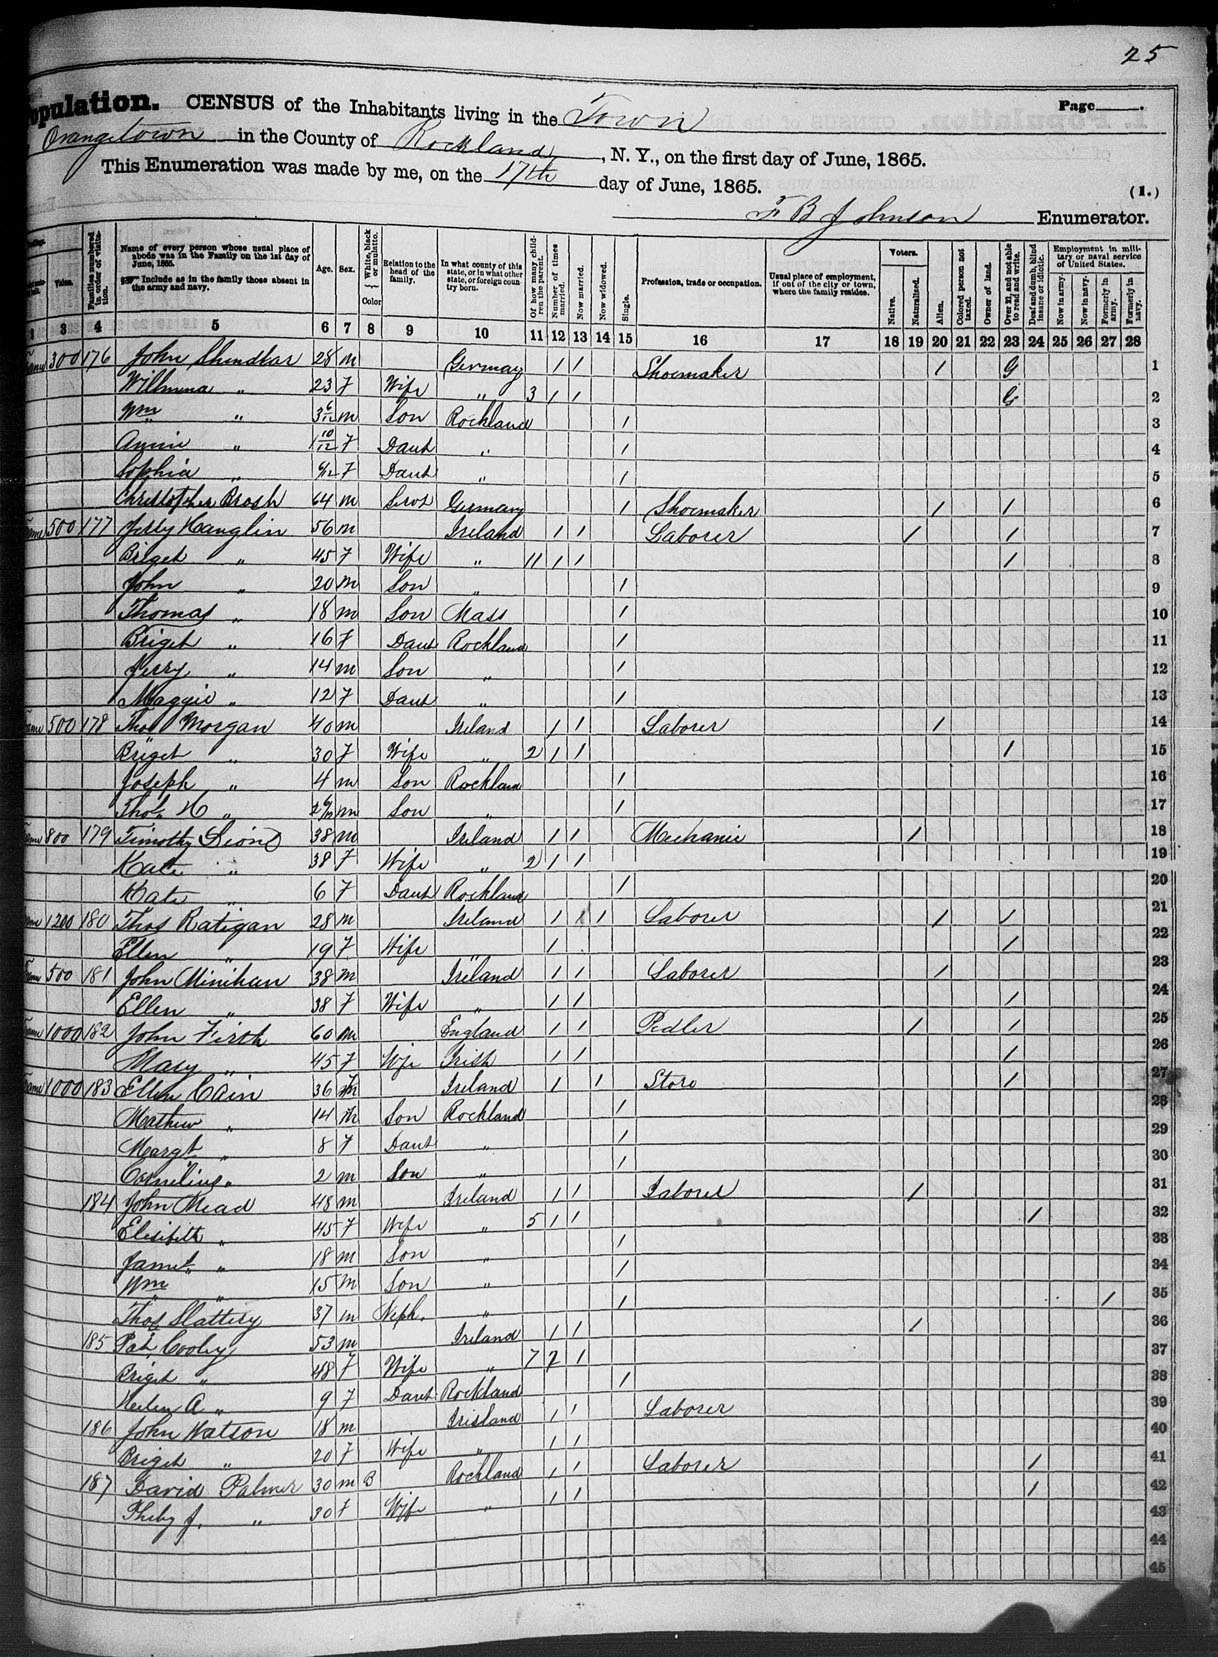 25
Population. CENSUS of the Inhabitants living in the Town Page____.
Orangetown in the County of Rockland, N. Y., on the first day of June, 1865.
This Enumeration was made by me, on the 17th day of June, 1865.
(1.)
F B Johnson Enumerator.
Value. Families numbered in order of visitation. Name of every person whose usual place of abode was in the Family on the 1st day of June, 1865. Include as in the family those absent in the army and navy. Age. Sex. White, black or mulatto. Color Relation to the head of the family. In what county of this state, or in what other state, or foreign country born. Of how many children the parent. Number of times married. Now married. Now widowed. Single. Profession, trade or occupation. Usual place of employment, if out of the city or town, where the family resides. Voters. Native. Naturalized. Alien. Colored person not taxed. Owner of land. Over 21, and not able to read and write. Deaf and dumb, blind insane or idiotic. Employment in military or naval service of United States. Now in army. Now in navy. Formerly in army. Formerly in navy.
3 4 5 6 7 8 9 10 11 12 13 14 15 16 17 18 19 20 21 22 23 24 25 26 27 28
300 176 John Shindkar 28 m Germay 1 1 Shoemaker 1 G 1
Willmina " 23 F Wife " 3 1 1 G 2
Wm " 3 6/12 m Son Rockland 1 3
Annie " 1 10/12 F Daut " 1 4
Sophia " F Daut " 1 5
Christopher Brosh 64 m Germany 1 Shoemaker 1 1 6
500 177 Jerry Hanglin 56 m Ireland 1 1 Laborer 1 1 7
Briget " 45 F Wife " 11 1 1 1 8
John " 20 m Son " 1 9
Thomas " 18 m Son Mass 1 10
Briget " 16 F Daut Rockland 1 11
Jerry " 14 m Son " 1 12
Maggie " 12 F Daut " 1 13
500 178 Thos Morgan 40 m Ireland 1 1 Laborer 1 14
Briget " 30 F Wife " 2 1 1 1 15
Joseph " 4 m Son Rockland 1 16
Thos H " m Son " 1 17
800 179 Timothy 38 m Ireland 1 1 Mechanic 1 18
Kate " 38 F Wife " 2 1 1 19
Kate " 6 F Daut Rockland 1 20
1200 180 Thos Ratigan 28 m Ireland 1 1 1 Laborer 1 1 21
Ellen " 19 F Wife " 1 1 22
500 181 John Minihan 38 m Ireland 1 1 Laborer 1 23
Ellen " 38 F Wife " 1 1 1 24
1000 182 John Firth 60 m England 1 1 Pedler 1 1 25
Mary " 45 F Wife Irish 1 1 1 26
1000 183 Ellen Cain 36 F Ireland 1 1 Store 1 27
Mathew " 14 m Son Rockland 1 28
Margt " 8 F Daut " 1 29
Cornelius " 2 m Son " 1 30
184 John Mead 48 m Ireland 1 1 Laborer 1 31
Elisibeth " 45 F Wife " 5 1 1 1 32
James " 18 m Son " 1 33
Wm " 15 m Son " 1 34
Thos Slattery 37 m Neph. " 1 1 35
185 Pat Cooley 53 m Ireland 1 1 1 36
Briget " 48 F Wife " 7 2 1 37
Helen A " 9 F Daut Rockland 1 38
186 John Watson 18 m Irisland 1 1 Laborer 39
Briget " 20 F Wife " 1 1 40
187 David Palmer 30 m B Rockland 1 1 Laborer 1 41
Pheby J. " 30 F Wife " 1 1 1 42
43
44
45